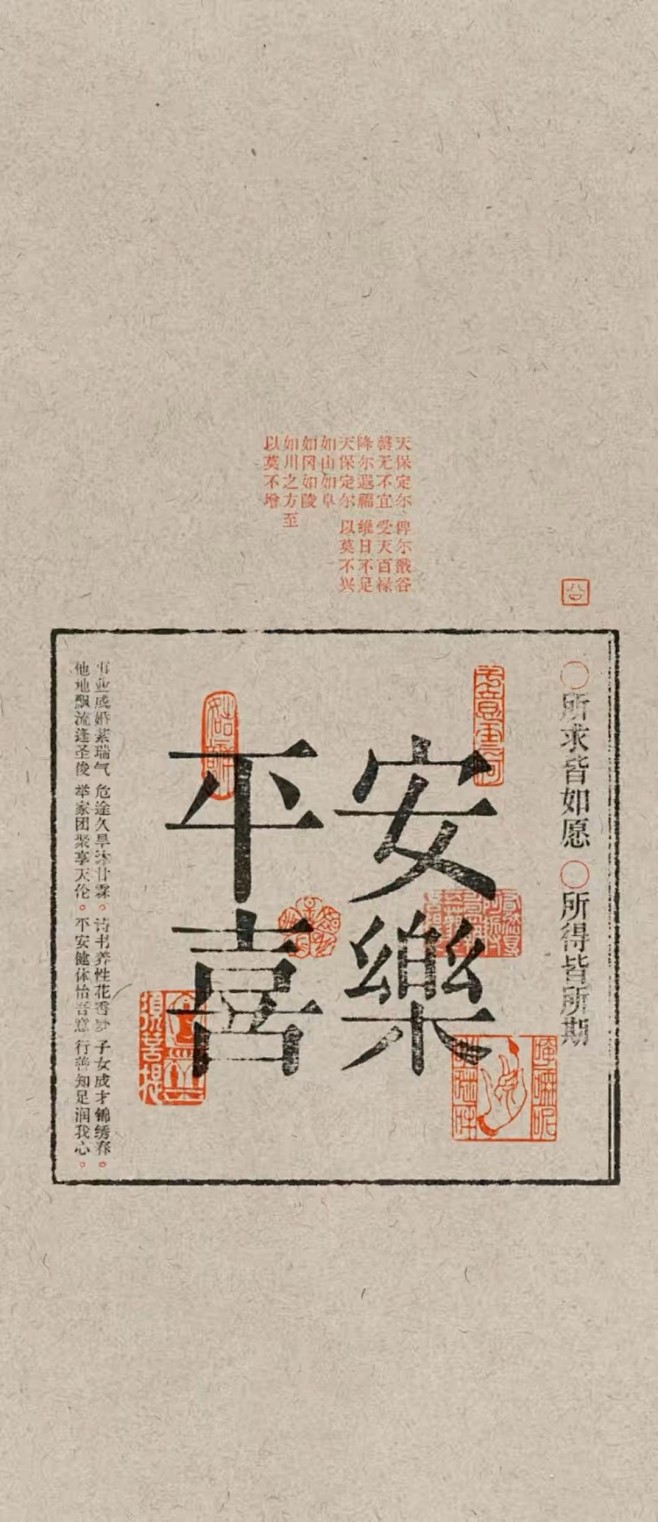 天保定尔 俾尔戬谷
罄无不宜 受天百禄
降尔遐福 维日不足
天保定尔 以莫不兴
如山如阜
如冈如陵
如川之方至
以莫不增
〇所求皆如愿 〇所得皆所期
平安
喜樂
事业成婚萦瑞气 危途久旱沐甘霖。诗书养性花香 子女成才锦绣春。
他地飘流逢圣俊 举家团聚享天伦。平安健体怡吾意 行善知足润我心。